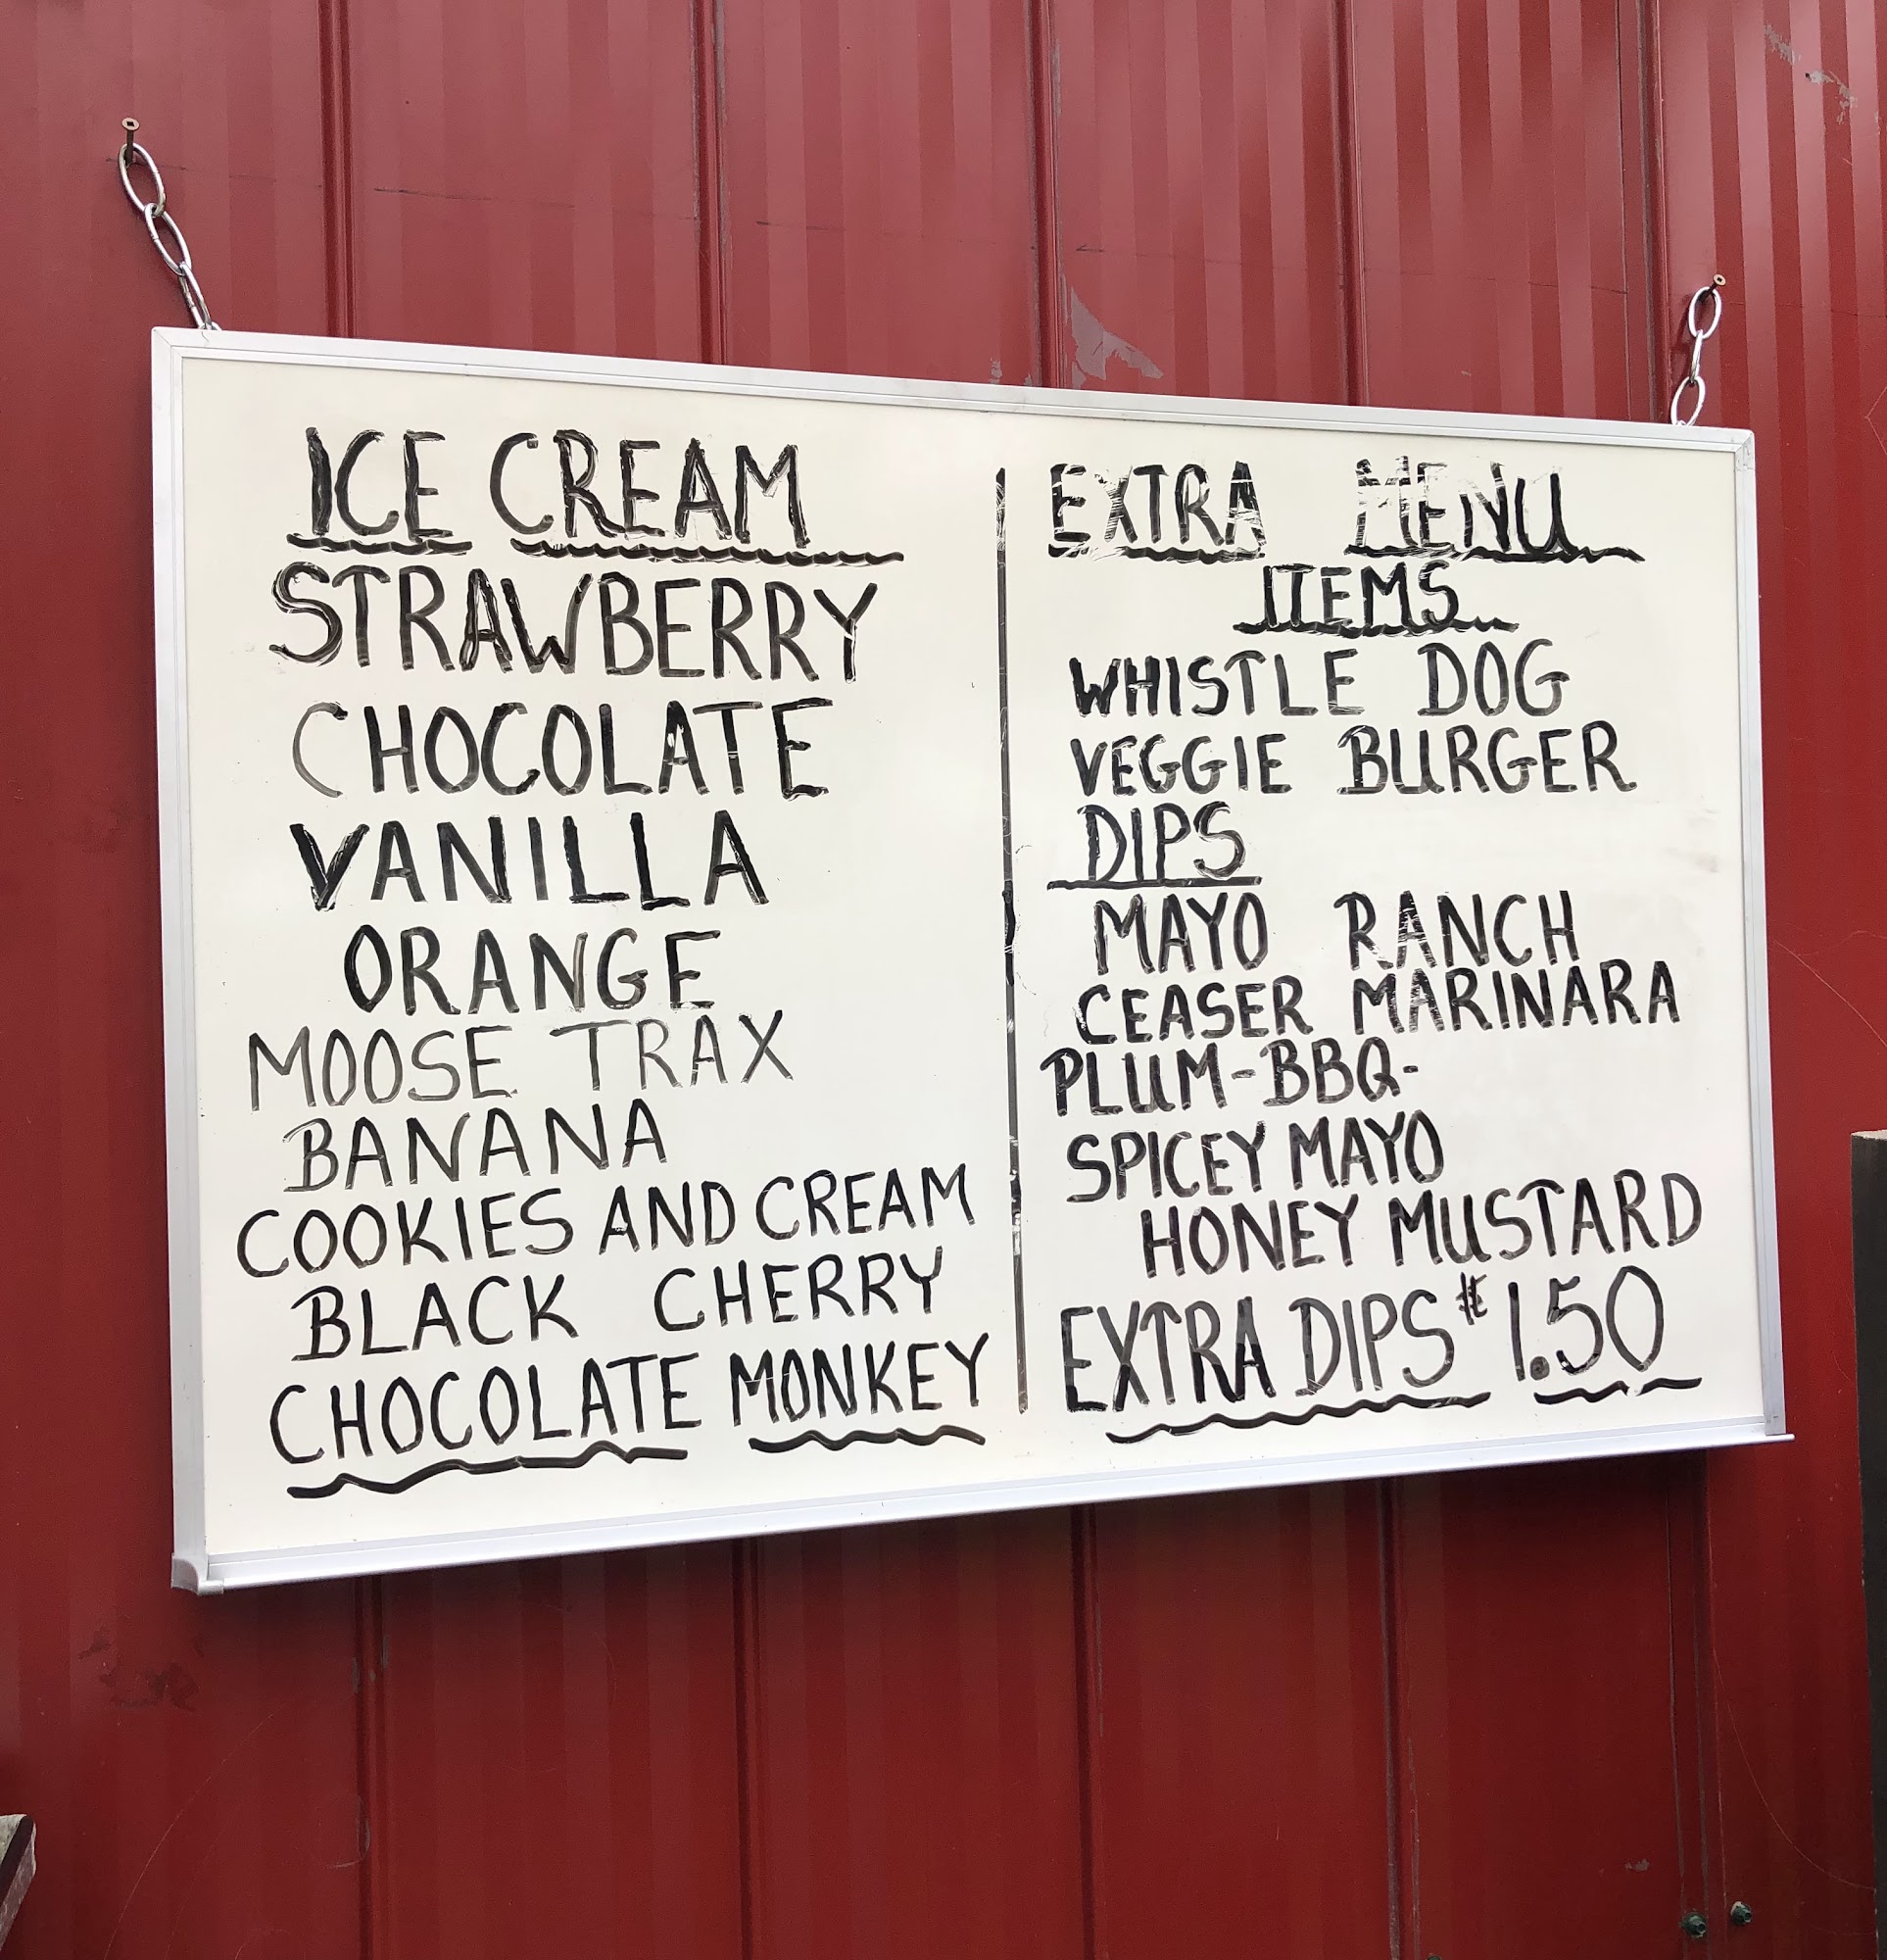 ICE CREAM
STRAWBERRY
CHOCOLATE
VANILLA
ORANGE
MOOSE TRAX
BANANA
COOKIES AND CREAM
BLACK CHERRY
CHOCOLATE MONKEY
EXTRA MENU
ITEMS
WHISTLE DOG
VEGGIE BURGER
DIPS
MAYO RANCH
CEASER MARINARA
PLUM-BBQ-
SPICEY MAYO
HONEY MUSTARD
EXTRA DIPS $1.50